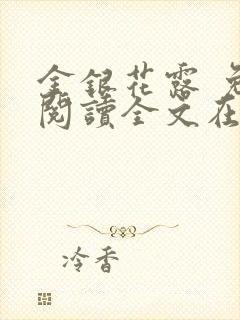 金銀花露 免
閱讀全文在
冷香